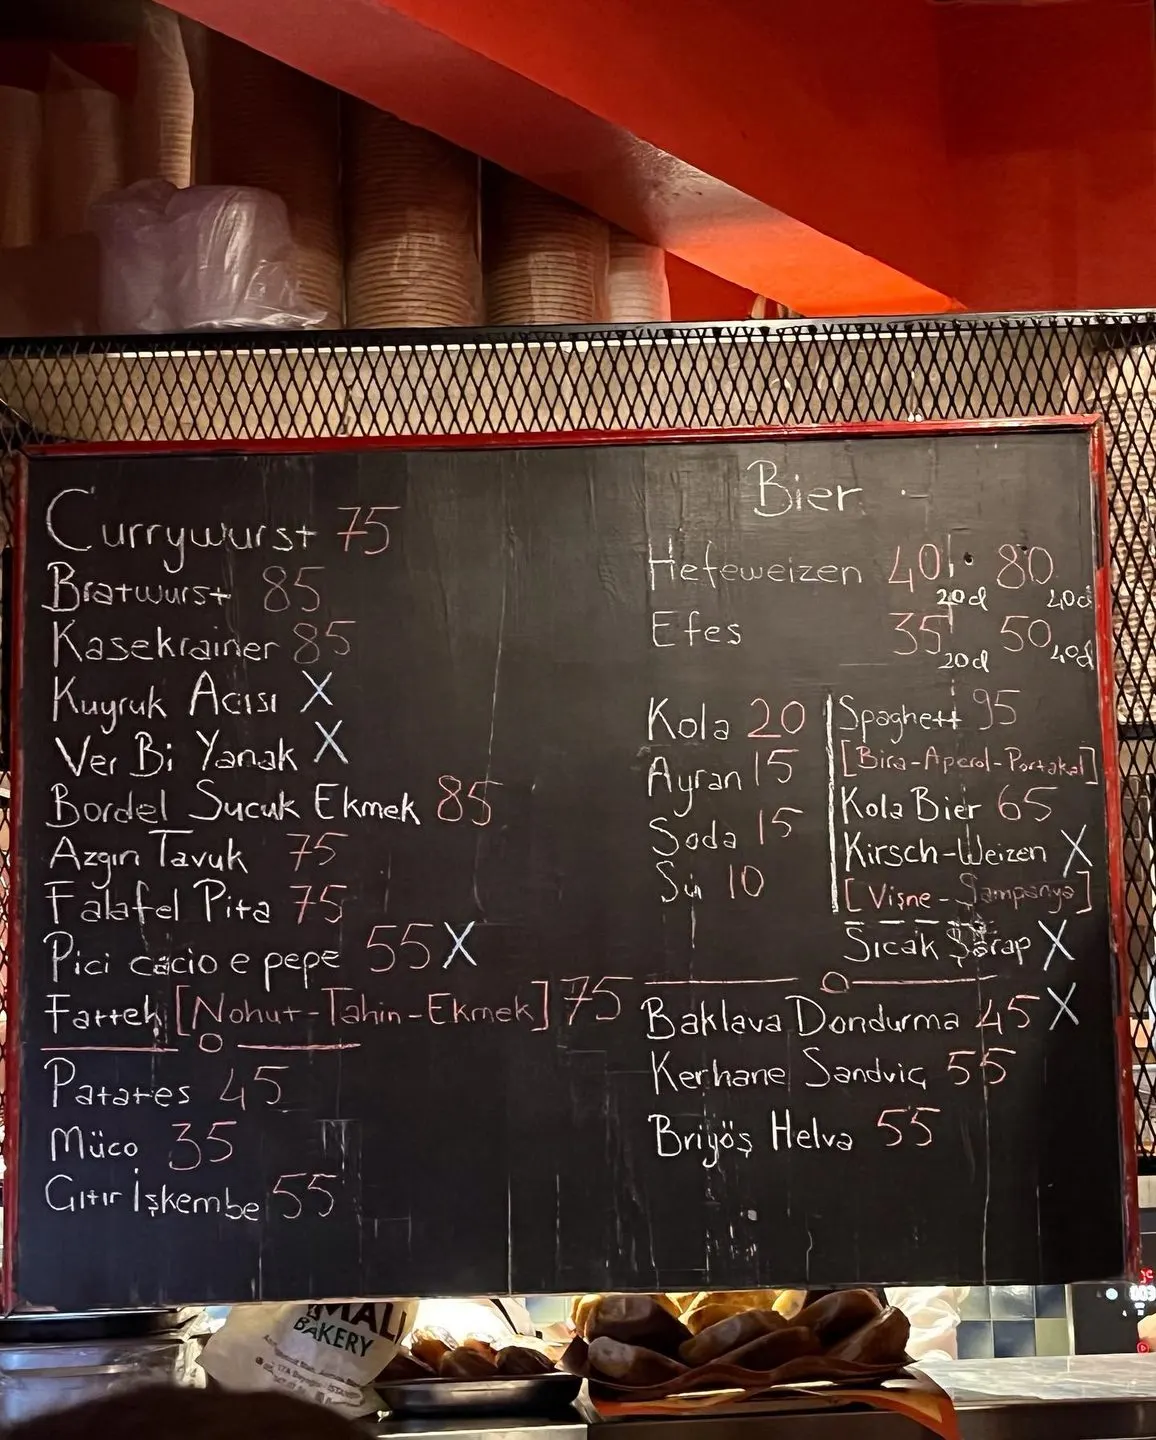 Currywurst 75
Bratwurst 85
Kasekrainer 85
Kuyruk Acısı X
Ver Bi Yanak X
Bordel Sucuk Ekmek 85
Azgın Tavuk 75
Falafel Pita 75
Pici cacio e pepe 55 X
Fatteh [Nohut-Tahin-Ekmek] 75
Patates 45
Müco 35
Gıtır İşkembe 55
Bier
Hefeweizen 40 20cl 80 40cl
Efes 35 20cl 50 40cl
Kola 20
Ayran 15
Soda 15
Su 10
Spaghett 95
[Bira-Aperol-Portakal]
Kola Bier 65
Kirsch-Weizen X
[Vişne-Şampanya]
Sıcak Şarap X
Baklava Dondurma 45 X
Kerhane Sandviç 55
Briyöş Helva 55
BAKERY